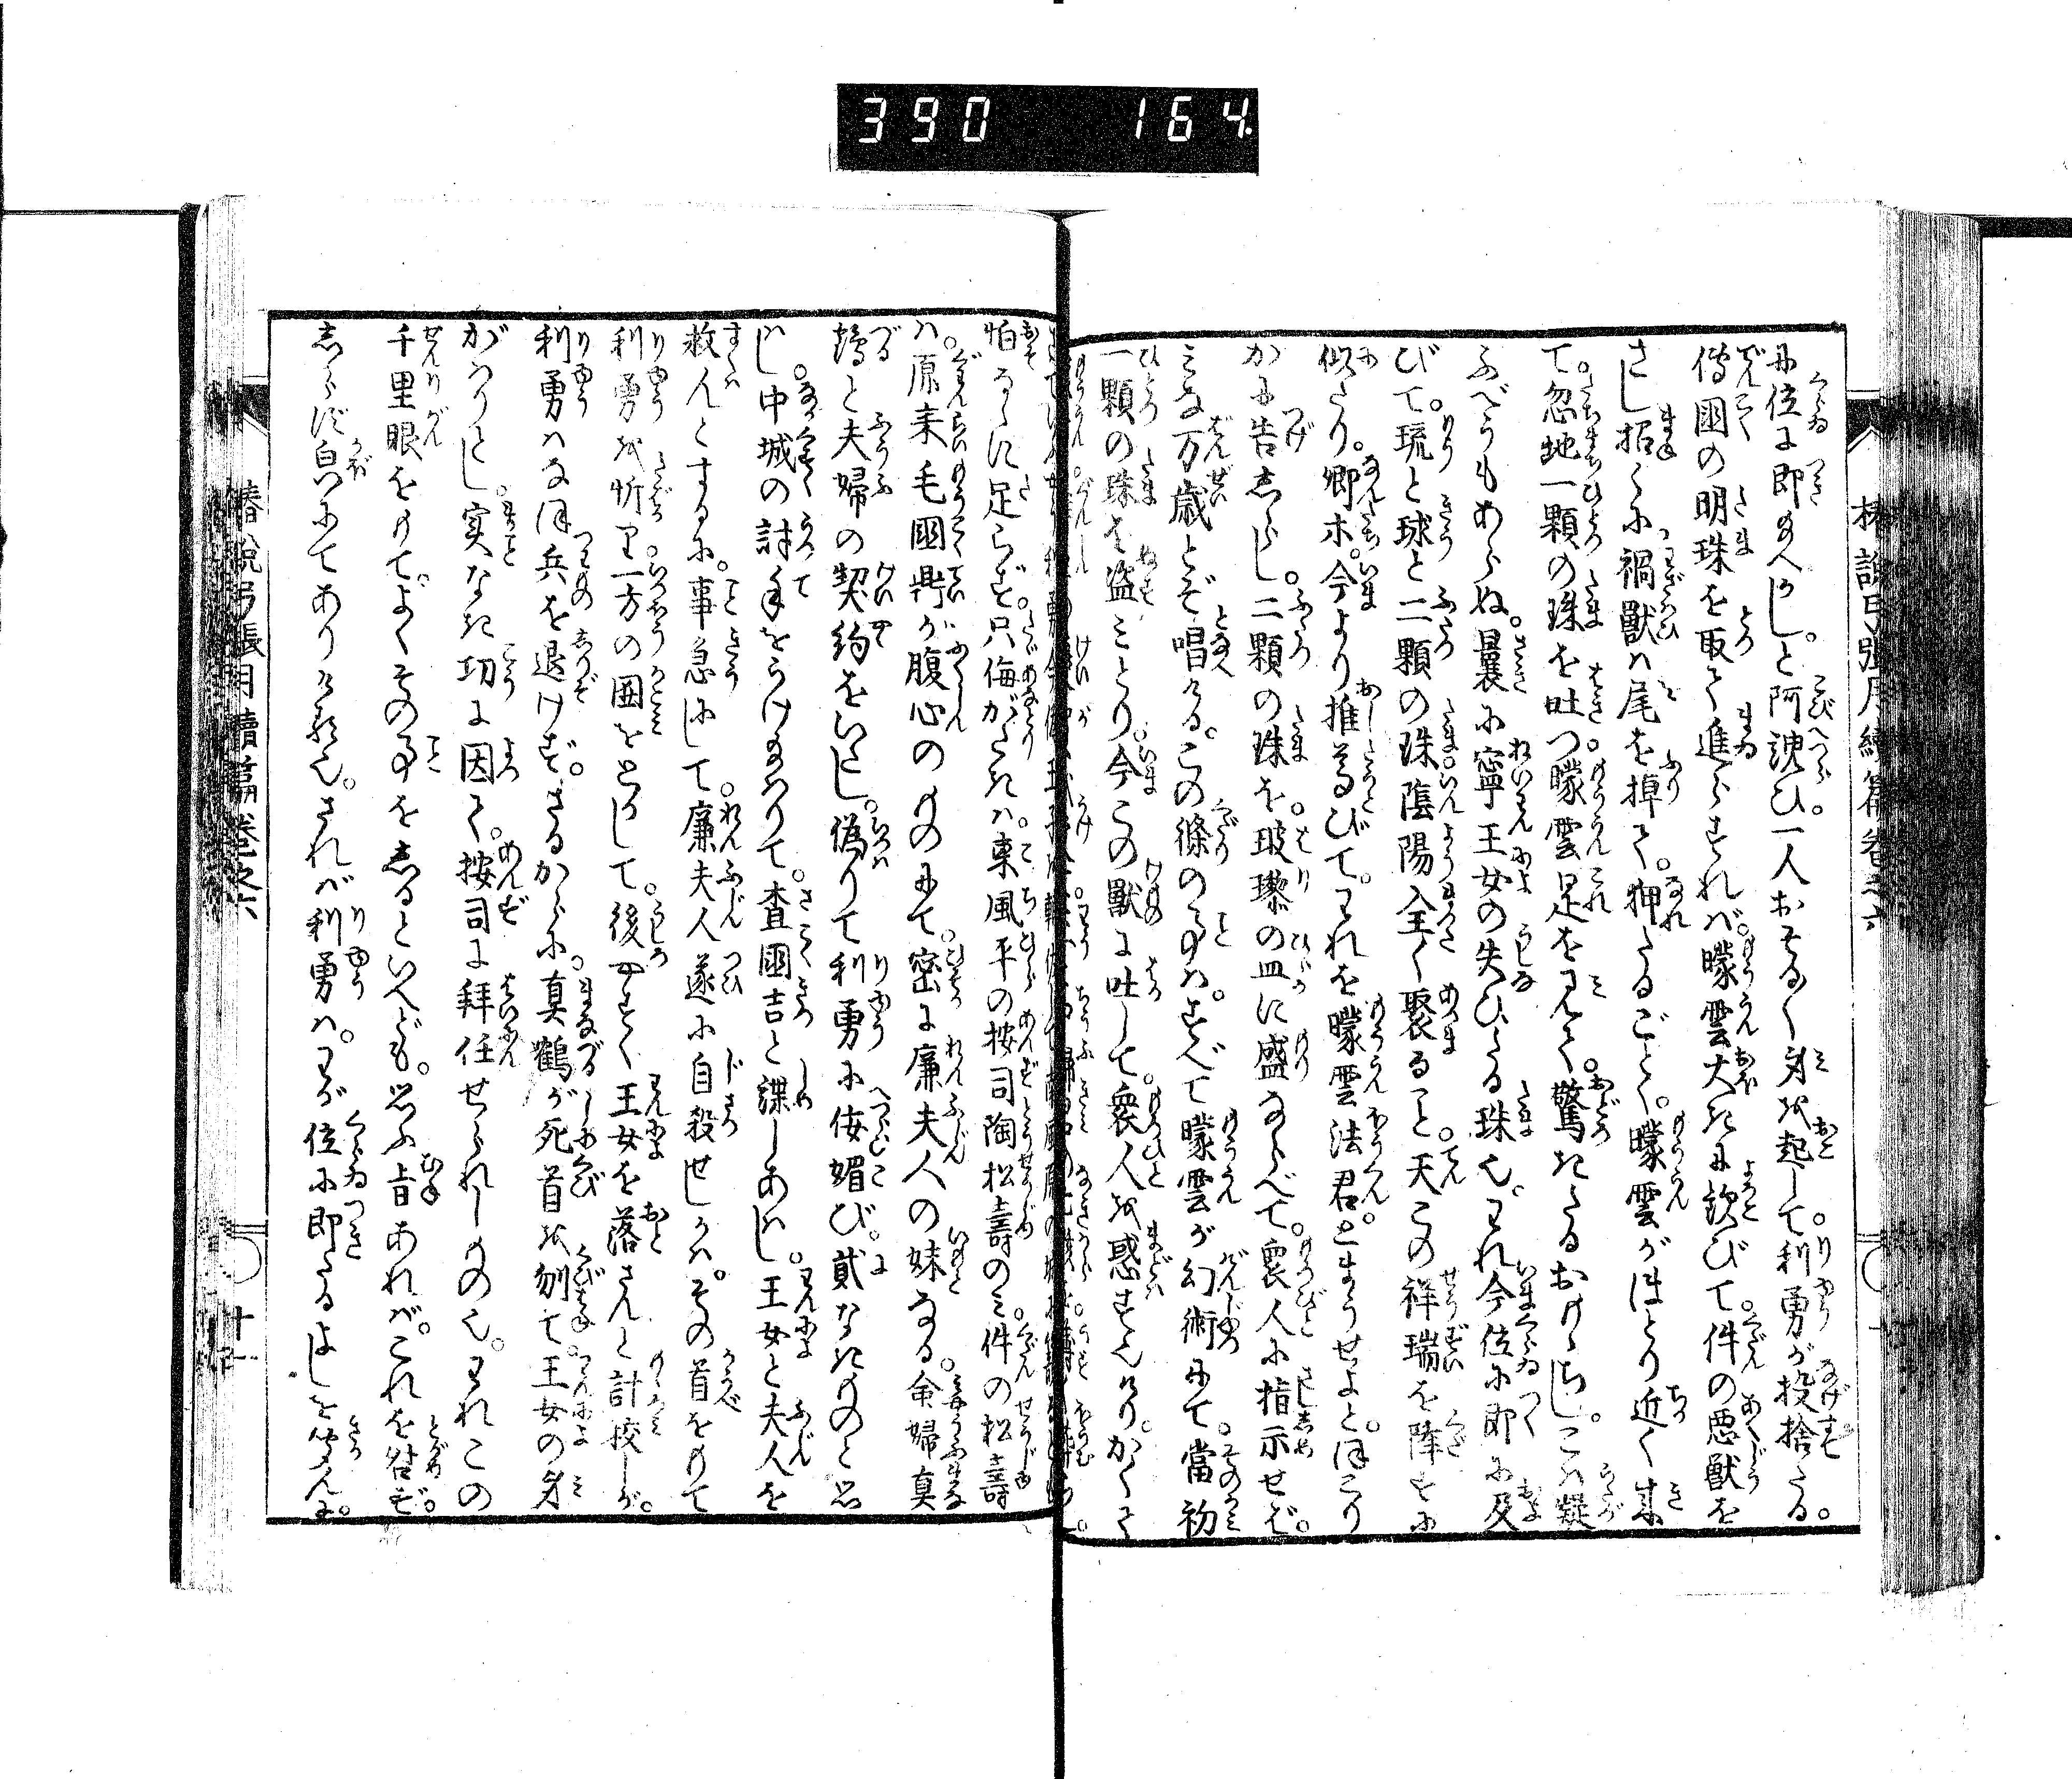 390 164.
椿説弓張月續篇卷之六
に位に即給へかし。と阿諛ひ一人おそる〱身を起して利勇が投捨たる。
傳國の明珠を取て進らすれば。曚雲大きに歓びて。件の悪獣を
さし招くに禍獣は尾を掉て。狎たるごとく。曚雲がほとり近く来
て。忽地一顆の珠を吐つ曚雲足を見て。驚きたるおももちし。こは疑
ふべうもあらぬ。曩に寧王女の失ひたる珠也。われ今位に即に及
びて。琉と球と二顆の珠陰陽全く聚ること。天この祥瑞を降すに
似たり。卿等。今より推尊びて。われを曚雲法君。とまうせよと。ほこり
かに告しらし。二顆の珠を。玻瓈の皿に盛ならべて。衆人に指示せば。
みな万歳とぞ唱ける。この條の事は。すべて曚雲が幻術にて。當初
一顆の珠を盗みとり今この獣に吐して。衆人を惑すも也けり。かくて
怕るゝに足らず。只侮がたきは。東風平の按司陶松壽のみ。件の松壽
は。原来毛國鼎が腹心のものにて。密に廉夫人の妹なる。命婦真
鶴と夫婦の契約をいたし。偽りて利勇に侫媚び。貳なきものと思
はし。中城の討手をうけ給はりて。査國吉と諜しあはし。王女と夫人を
救んとするに。事急にして。廉夫人遂に自殺せしかば。その首をもて
利勇を忻り一方の圍をとかして。後やすく王女を落さんと計挍しが。
利勇はなほ兵を退けず。さるからに。真鶴が死首を刎て。王女の身
がはりとし。実なき功に因て。按司に拝任せられしもの也。われこの
千里眼をもて。よくその事をしるといへども。思ふ旨あれば。これを咎ず。
しらず㒵にてありける也。されば利勇は。わが位に即たるよしを聞んに。
椿説弓張月續篇卷之六
十一